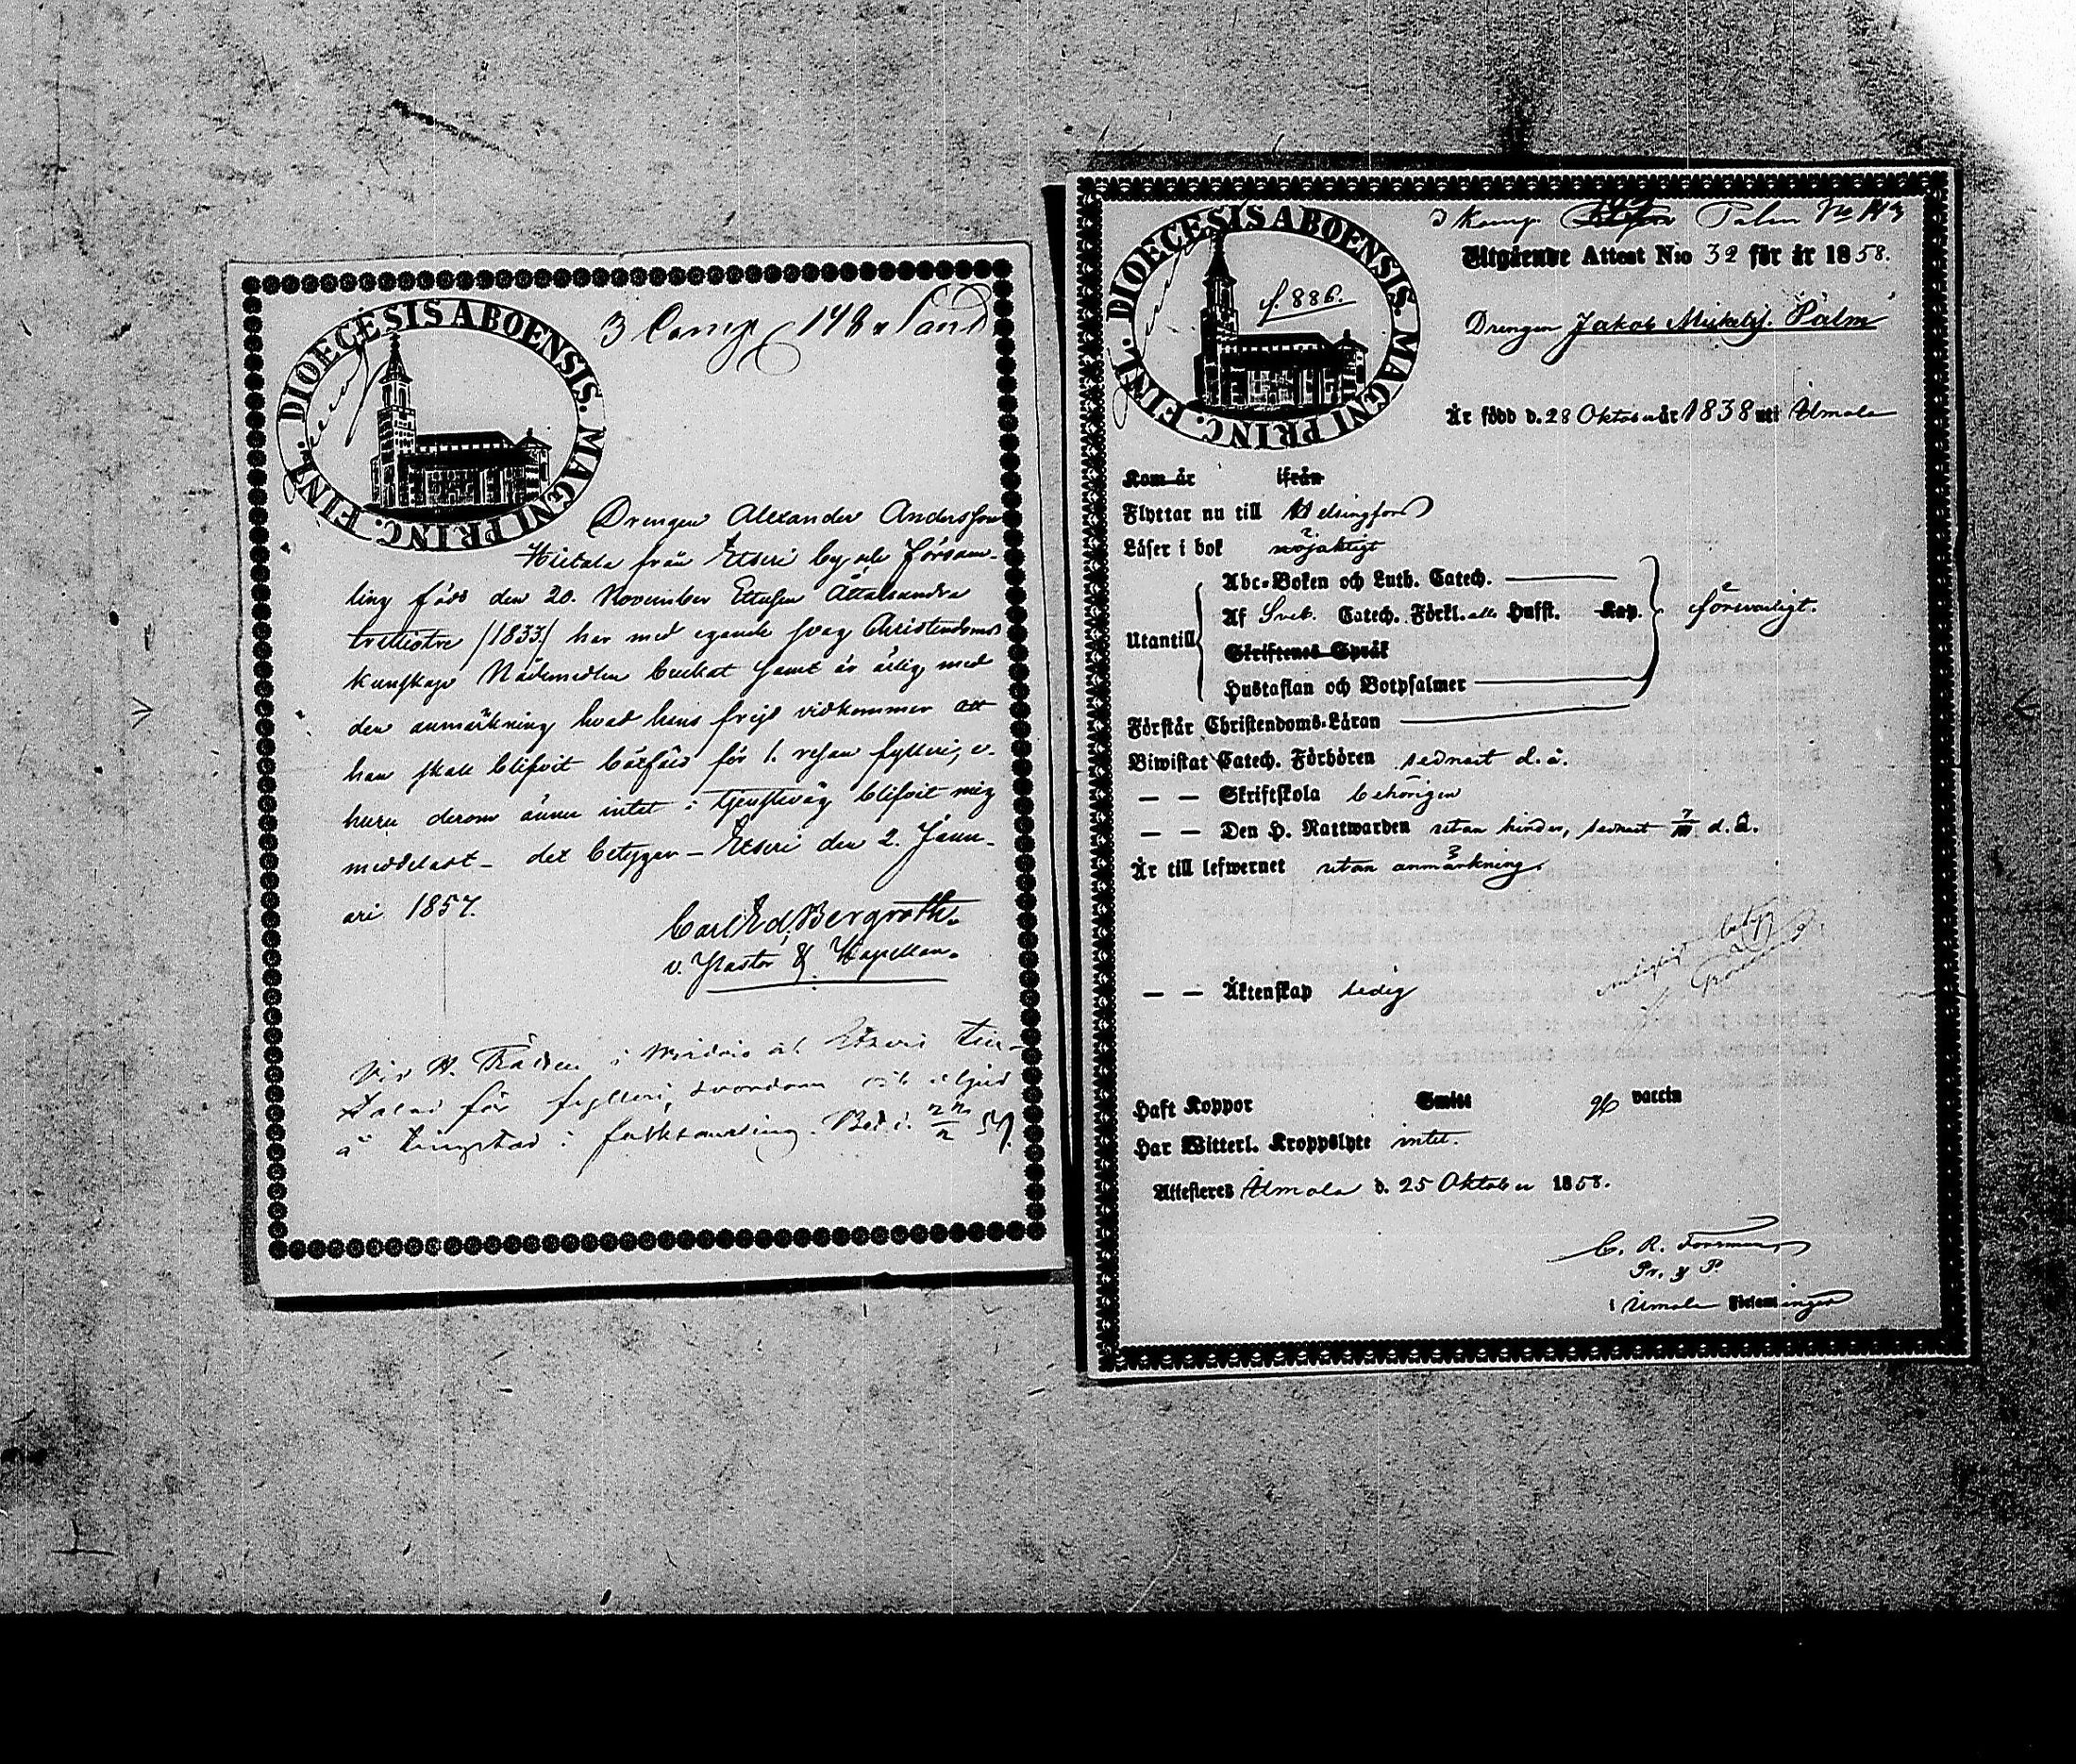 DIOECESIS ABOENSIS. MAGNI PRINC. FINL.
3 Comp 148 Sand
Drengen Alexander Andersson
Hietala från Etseri by och försam-
ling född den 20. November Ettusen Åttahundra
trettiotre /1833/ har med egande svag Christendoms
kunskap Nådemedlen brukat samt är ärlig med
den anmärkning hvad hans frejd vidkommer att
han skall blifvit bötfäld för 1. resan fylleri,
huru derom ännu intet i tjensteväg blifvit mig
meddelast – det betygar – Etseri den 2. Janu-
ari 1857.
Carl Ed. Bergroth.
v. Pastor & Kapellan.
Vid H. Träden i Wirdois och Etseris
för fylleri, svordom och oljud
å tingstad i folksamling.
DIOECESIS ABOENSIS. MAGNI PRINC. FINL.
f. 886.
3 Komp. Palm No 143
Utgående Attest N:o 32 för år 1858.
Drengen Jakob Mickelsj. Palm
Är född d. 28 Oktober år 1838 uti Ilmola
Kom år ifrån
Flyttar nu till Helsingfors
Läser i bok nöjaktigt
Utantill
Abc-Boken och Luth. Catech.
Af Sveb. Catech. Förkl. alla Hufst. Kap.
Skriftenes Språk
Hustaflan och Botpsalmer
försvarligt.
Förstår Christendoms-Läran
Biwistat Catech. Förhören sednast d. å.
— — Skriftskola behörigen
— — Den H. Nattwarden utan hinder, sednast 7/III d. å.
Är till lefwernet utan anmärkning.
— — Äktenskap ledig
Haft Koppor Smitt gf vaccin
Har Witterl. Kroppslyte intet.
Attesteres Ilmola d. 25 Oktober 1858.
C. R. Forsman
Pr. & P.
i Ilmola Församlingar